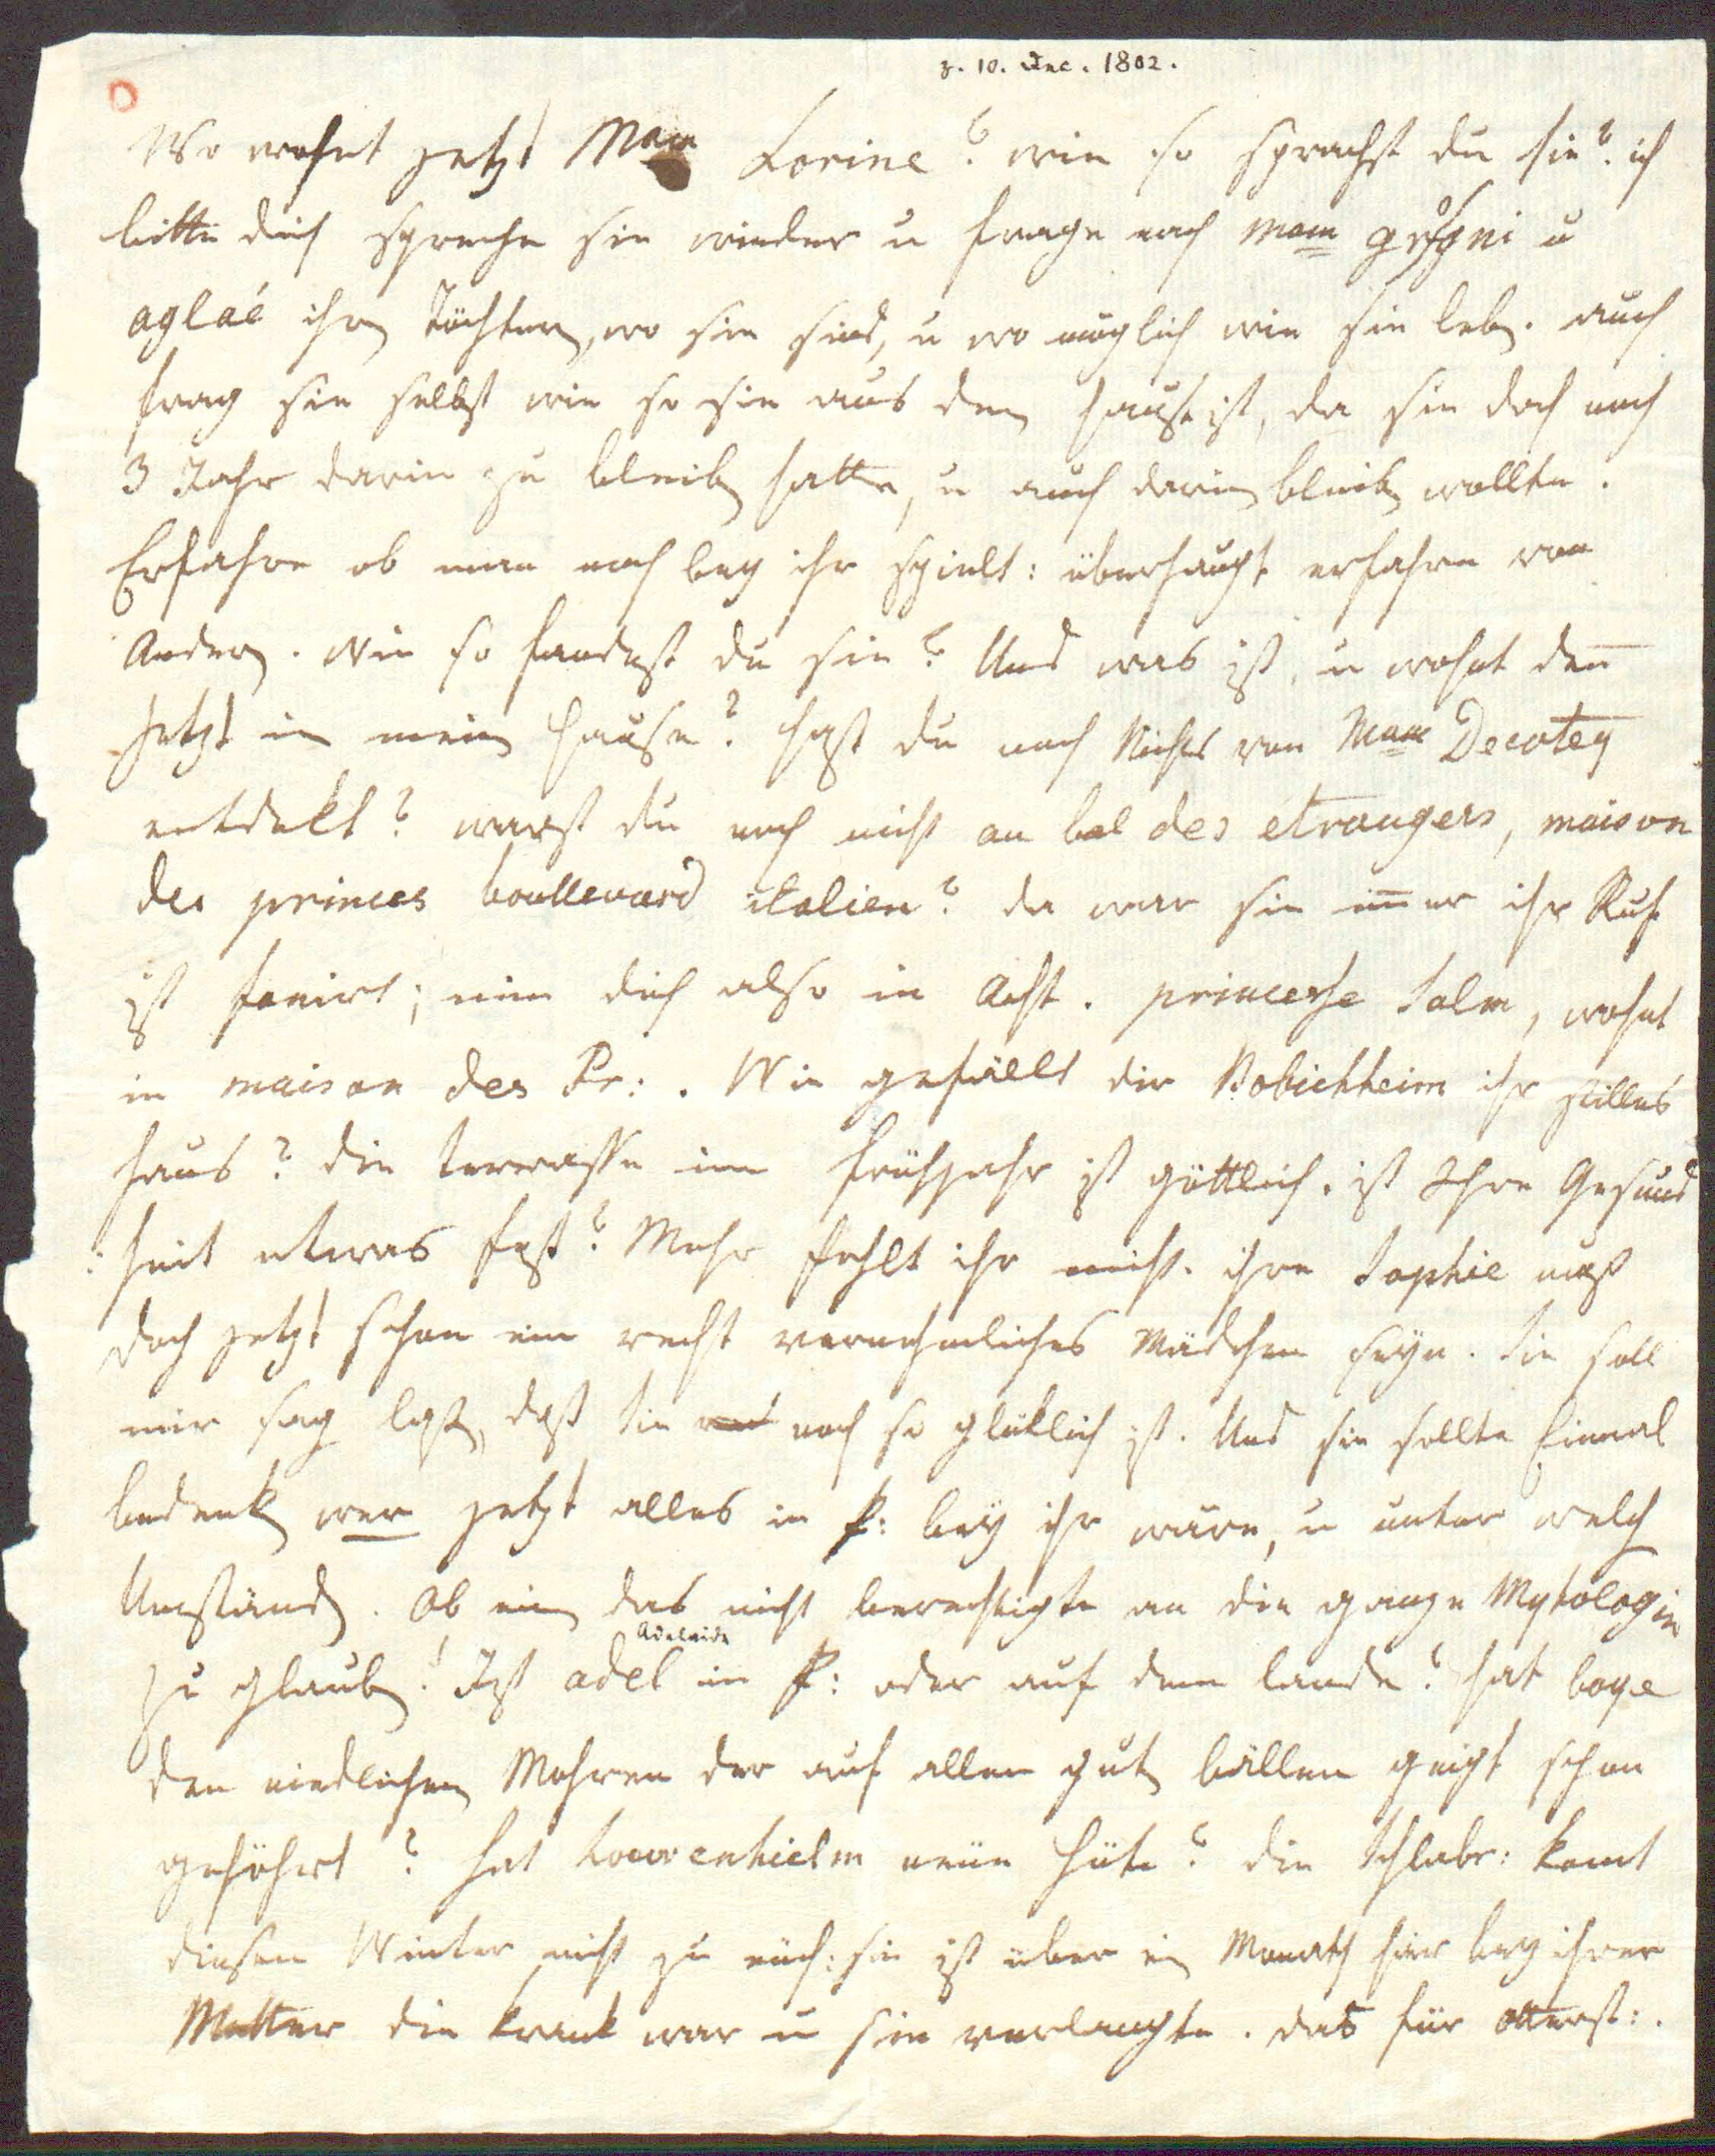 z. 10. Dec. 1802.
Wo wohnt jetzt Mam Lorine? wie so sprachst du sie? ich
bitte dich spreche sie wieder u frage nach Mam u
aglaé ihren Töchtern, wo sie sind, u wo möglich wie sie leben. auch
frag sie selbst wie so sie aus dem Hause ist, da sie doch noch
3 Jahr darin zu bleiben hatte, u auch darin bleiben wollte.
Erfahre ob man noch bey ihr spielt: überhaupt erfahre von
Andern. Wie so fandest du sie? Und was ist, u wohnt den̅
jetzt in meinem Hause? hast du noch Nichts von Mam Decotey
entdekt? warst du noch nicht au bal des étrangers, maison
des princes boullevard italien? da war sie im̅er ihr Ruf
ist fanirt; nim dich also in Acht. princesse Salm, wohnt
in maison des Pr:. Wie gefällt dir Bobichheim ihr stilles
Haus? die terrasse im Frühjahr ist göttlich. ist Ihre Gesund
:heit etwas fest? Mehr fehlt ihr nicht. ihre Sophie muß
doch jetzt schon ein recht vernehmliches Mädchen seyn. Sie soll
mir sagen lassen, daß Sie noch so glüklich ist. Und sie sollte Einmal
bedenken wer jetzt alles in P: bey ihr wäre, u unter welchen
Umständen. Ob einen das nicht berechtigte an die ganze Mytologie
Adelaide
zu glauben! Ist adel in P: oder auf dem lande? hat boye
den niedlichen Mohren der auf allen guten bällen geigt schon
gehöhrt? hat Loewenhielm neue Hüte? die Schlabr: komt
diesen Winter nicht zu euch: sie ist über ein Monath hier bey ihrer
Mutter die krank war u sie verlangte. das für Otterst:.